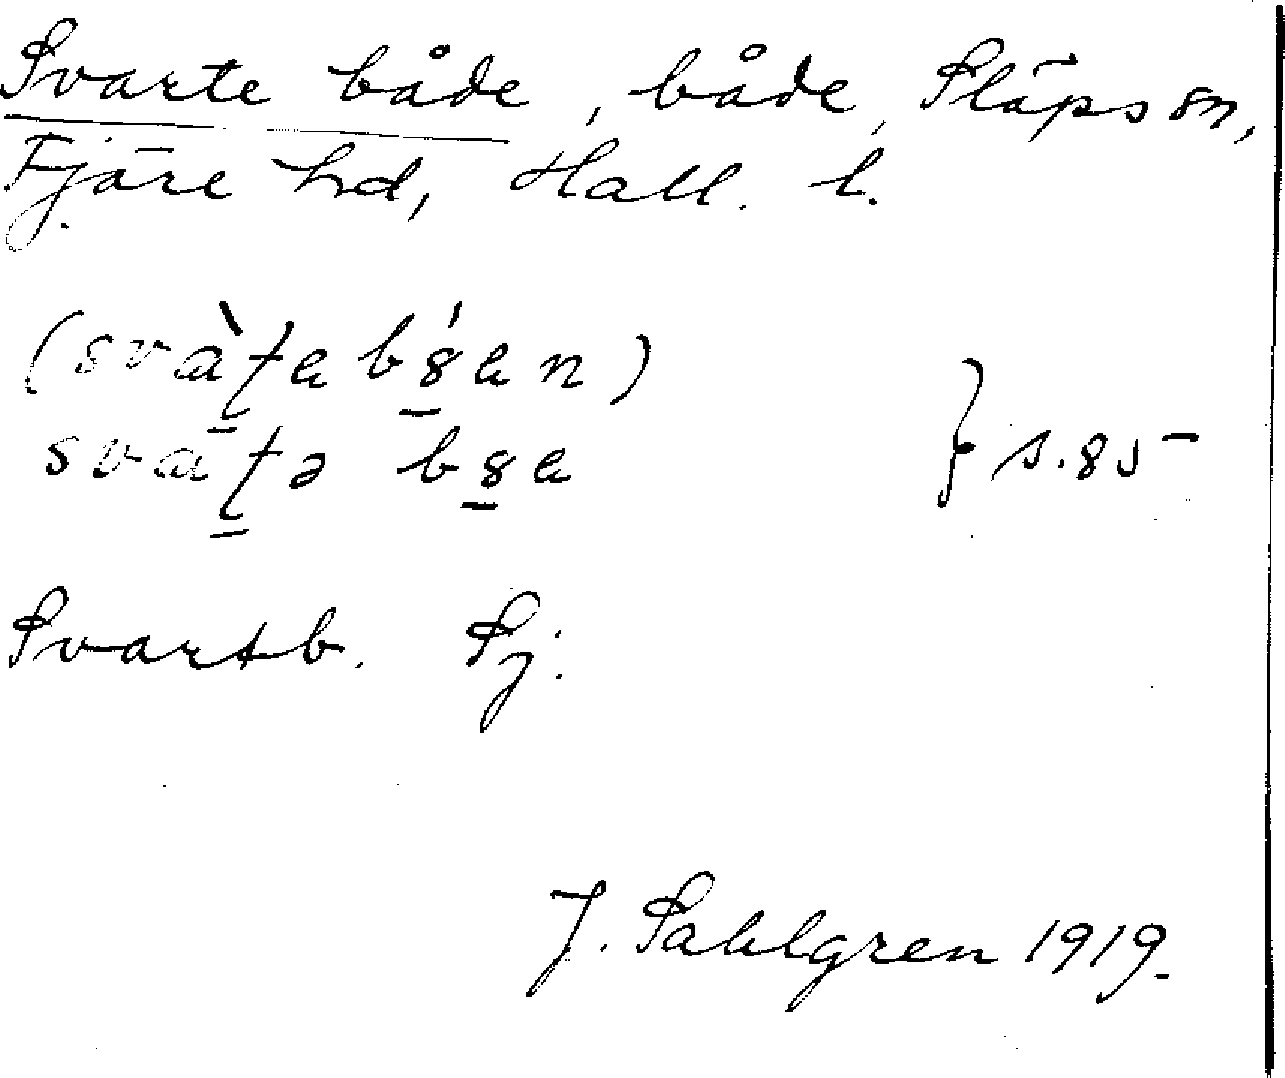 Svarte både, både, Släps sn,
Fjäre hd, Hall. l.
(svàʈa b8́an)
svaʈə b8a } s. 85
Svartb. Sj.
J. Sahlgren 1919.